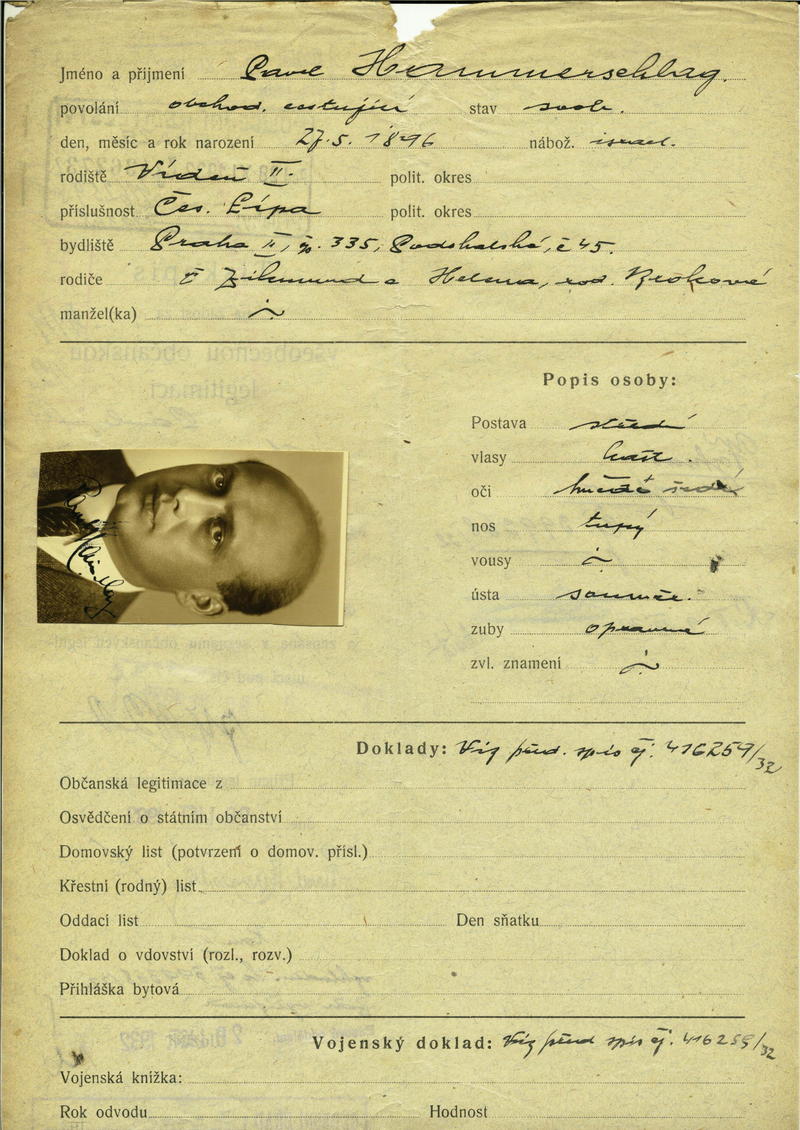 Jméno a příjmení Pavel Hammerschlag.
povolání obchod. cestující stav svob.
den, měsíc a rok narození 27.5.1896 nábož. israel.
rodiště Vídeň II. polit. okres
příslušnost Čes. Lípa polit. okres
bydliště Praha II, čp. 335, Podskalská, č 45.
rodiče Zikmund a Helena, roz.
manžel(ka)
Popis osoby:
Postava střední
vlasy
oči hnědě šedé
nos tupý
vousy
ústa souměr.
zuby opravné
zvl. znamení
Doklady: Viz před. spis čj. 416259/32
Občanská legitimace z
Osvědčení o státním občanství
Domovský list (potvrzení o domov. přísl.)
Křestní (rodný) list
Oddací list Den sňatku
Doklad o vdovství (rozl., rozv.)
Přihláška bytová
Vojenský doklad: Viz před spis čj. 416259/32
Vojenská knížka:
Rok odvodu Hodnost